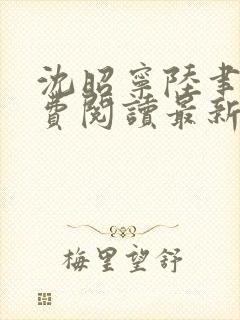 沈昭寧陸聿
費閱讀最新
梅里望舒